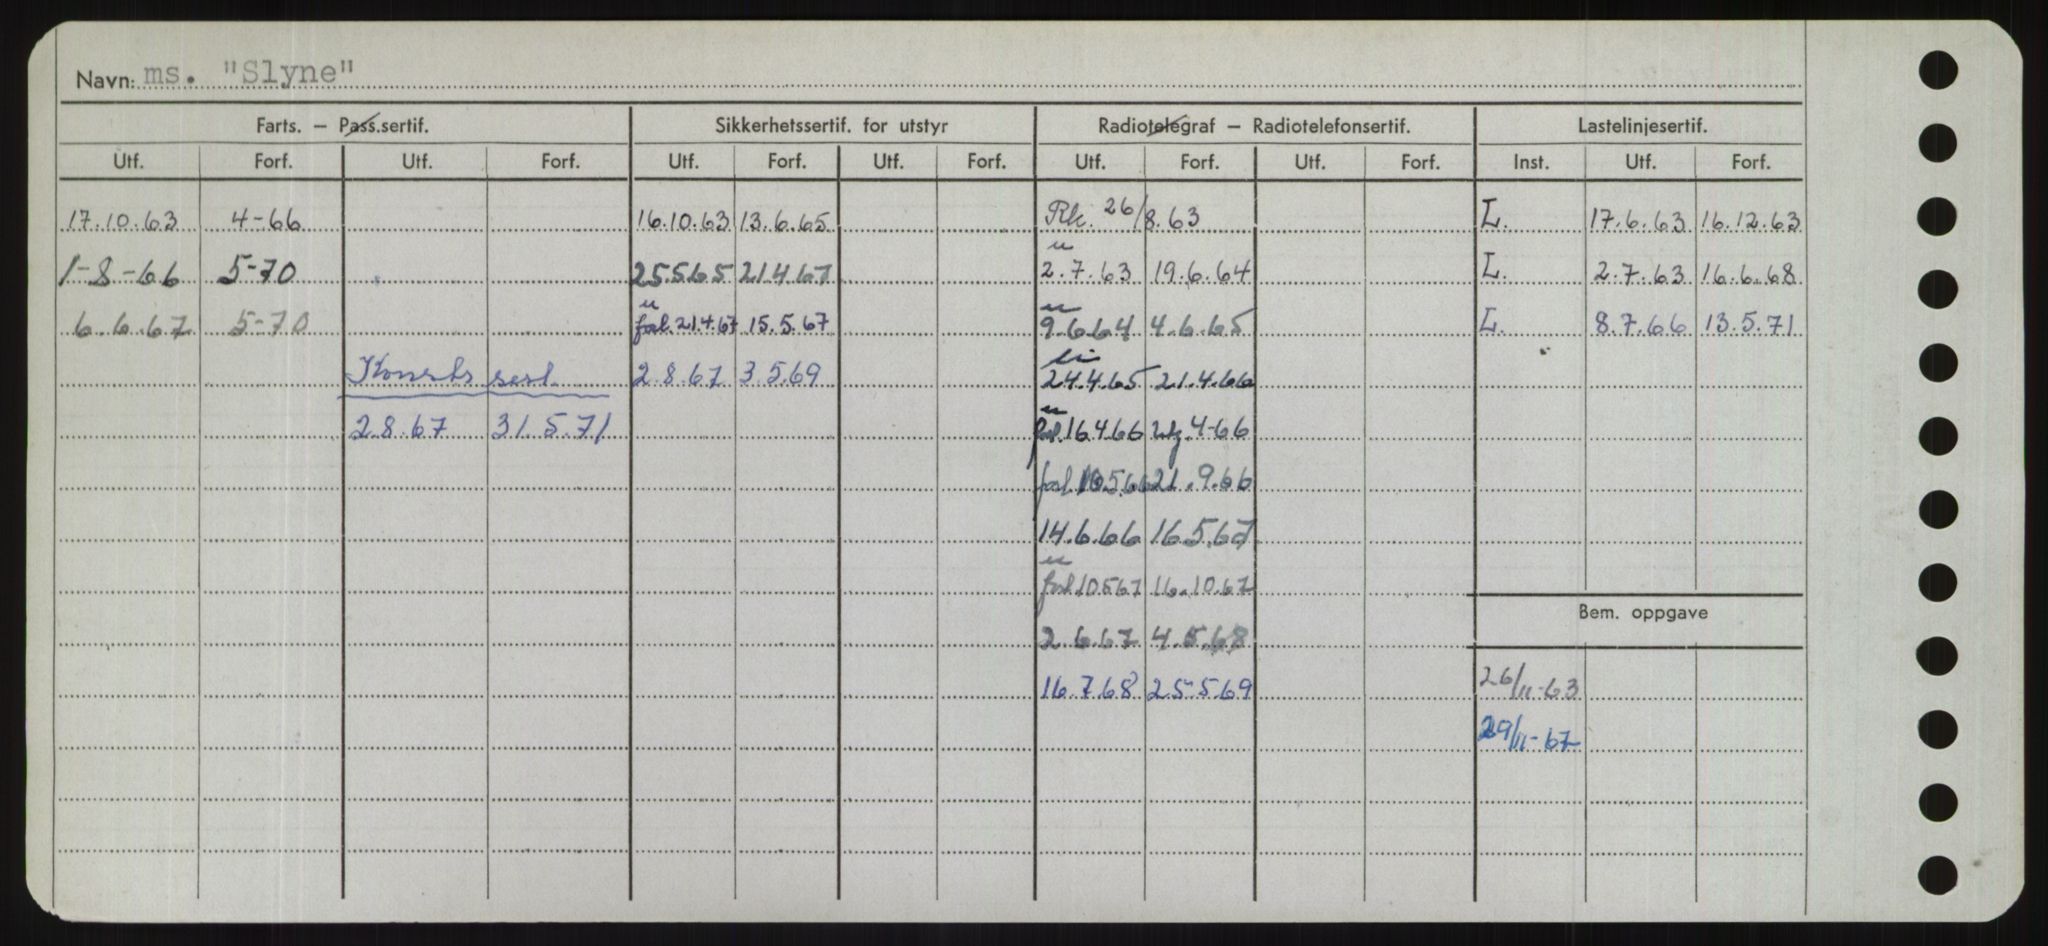 Navn: ms. "Slyne"
Farts. – Pass.sertif. Sikkerhetssertif. for utstyr Radiotelegraf – Radiotelefonsertif. Lastelinjesertif.
Utf. Forf. Utf. Forf. Utf. Forf. Utf. Forf. Utf. Forf. Utf. Forf. Inst. Utf. Forf.
17.10.63 4-66 16.10.63 13.6.65 Rk. 26/8.63 L. 17.6.63 16.12.63
u
1-8-66 5-70 25.5.65 21.4.67 2.7.63 19.6.64 L. 2.7.63 16.6.68
u u
6.6.67 5-70 forl. 21.4.67 15.5.67 9.6.64 4.6.65 L. 8.7.66 13.5.71
Konstr. sert. 2.8.67 3.5.69 24.4.65 21.4.66
u
2.8.67 31.5.71 forl. 16.4.66 utg. 4-66
forl. 10.5.66 21.9.66
14.6.66 16.5.67
u
forl. 10.5.67 16.10.67
Bem. oppgave
2.6.67 4.5.68
16.7.68 25.5.69 26/11-63
29/11-67